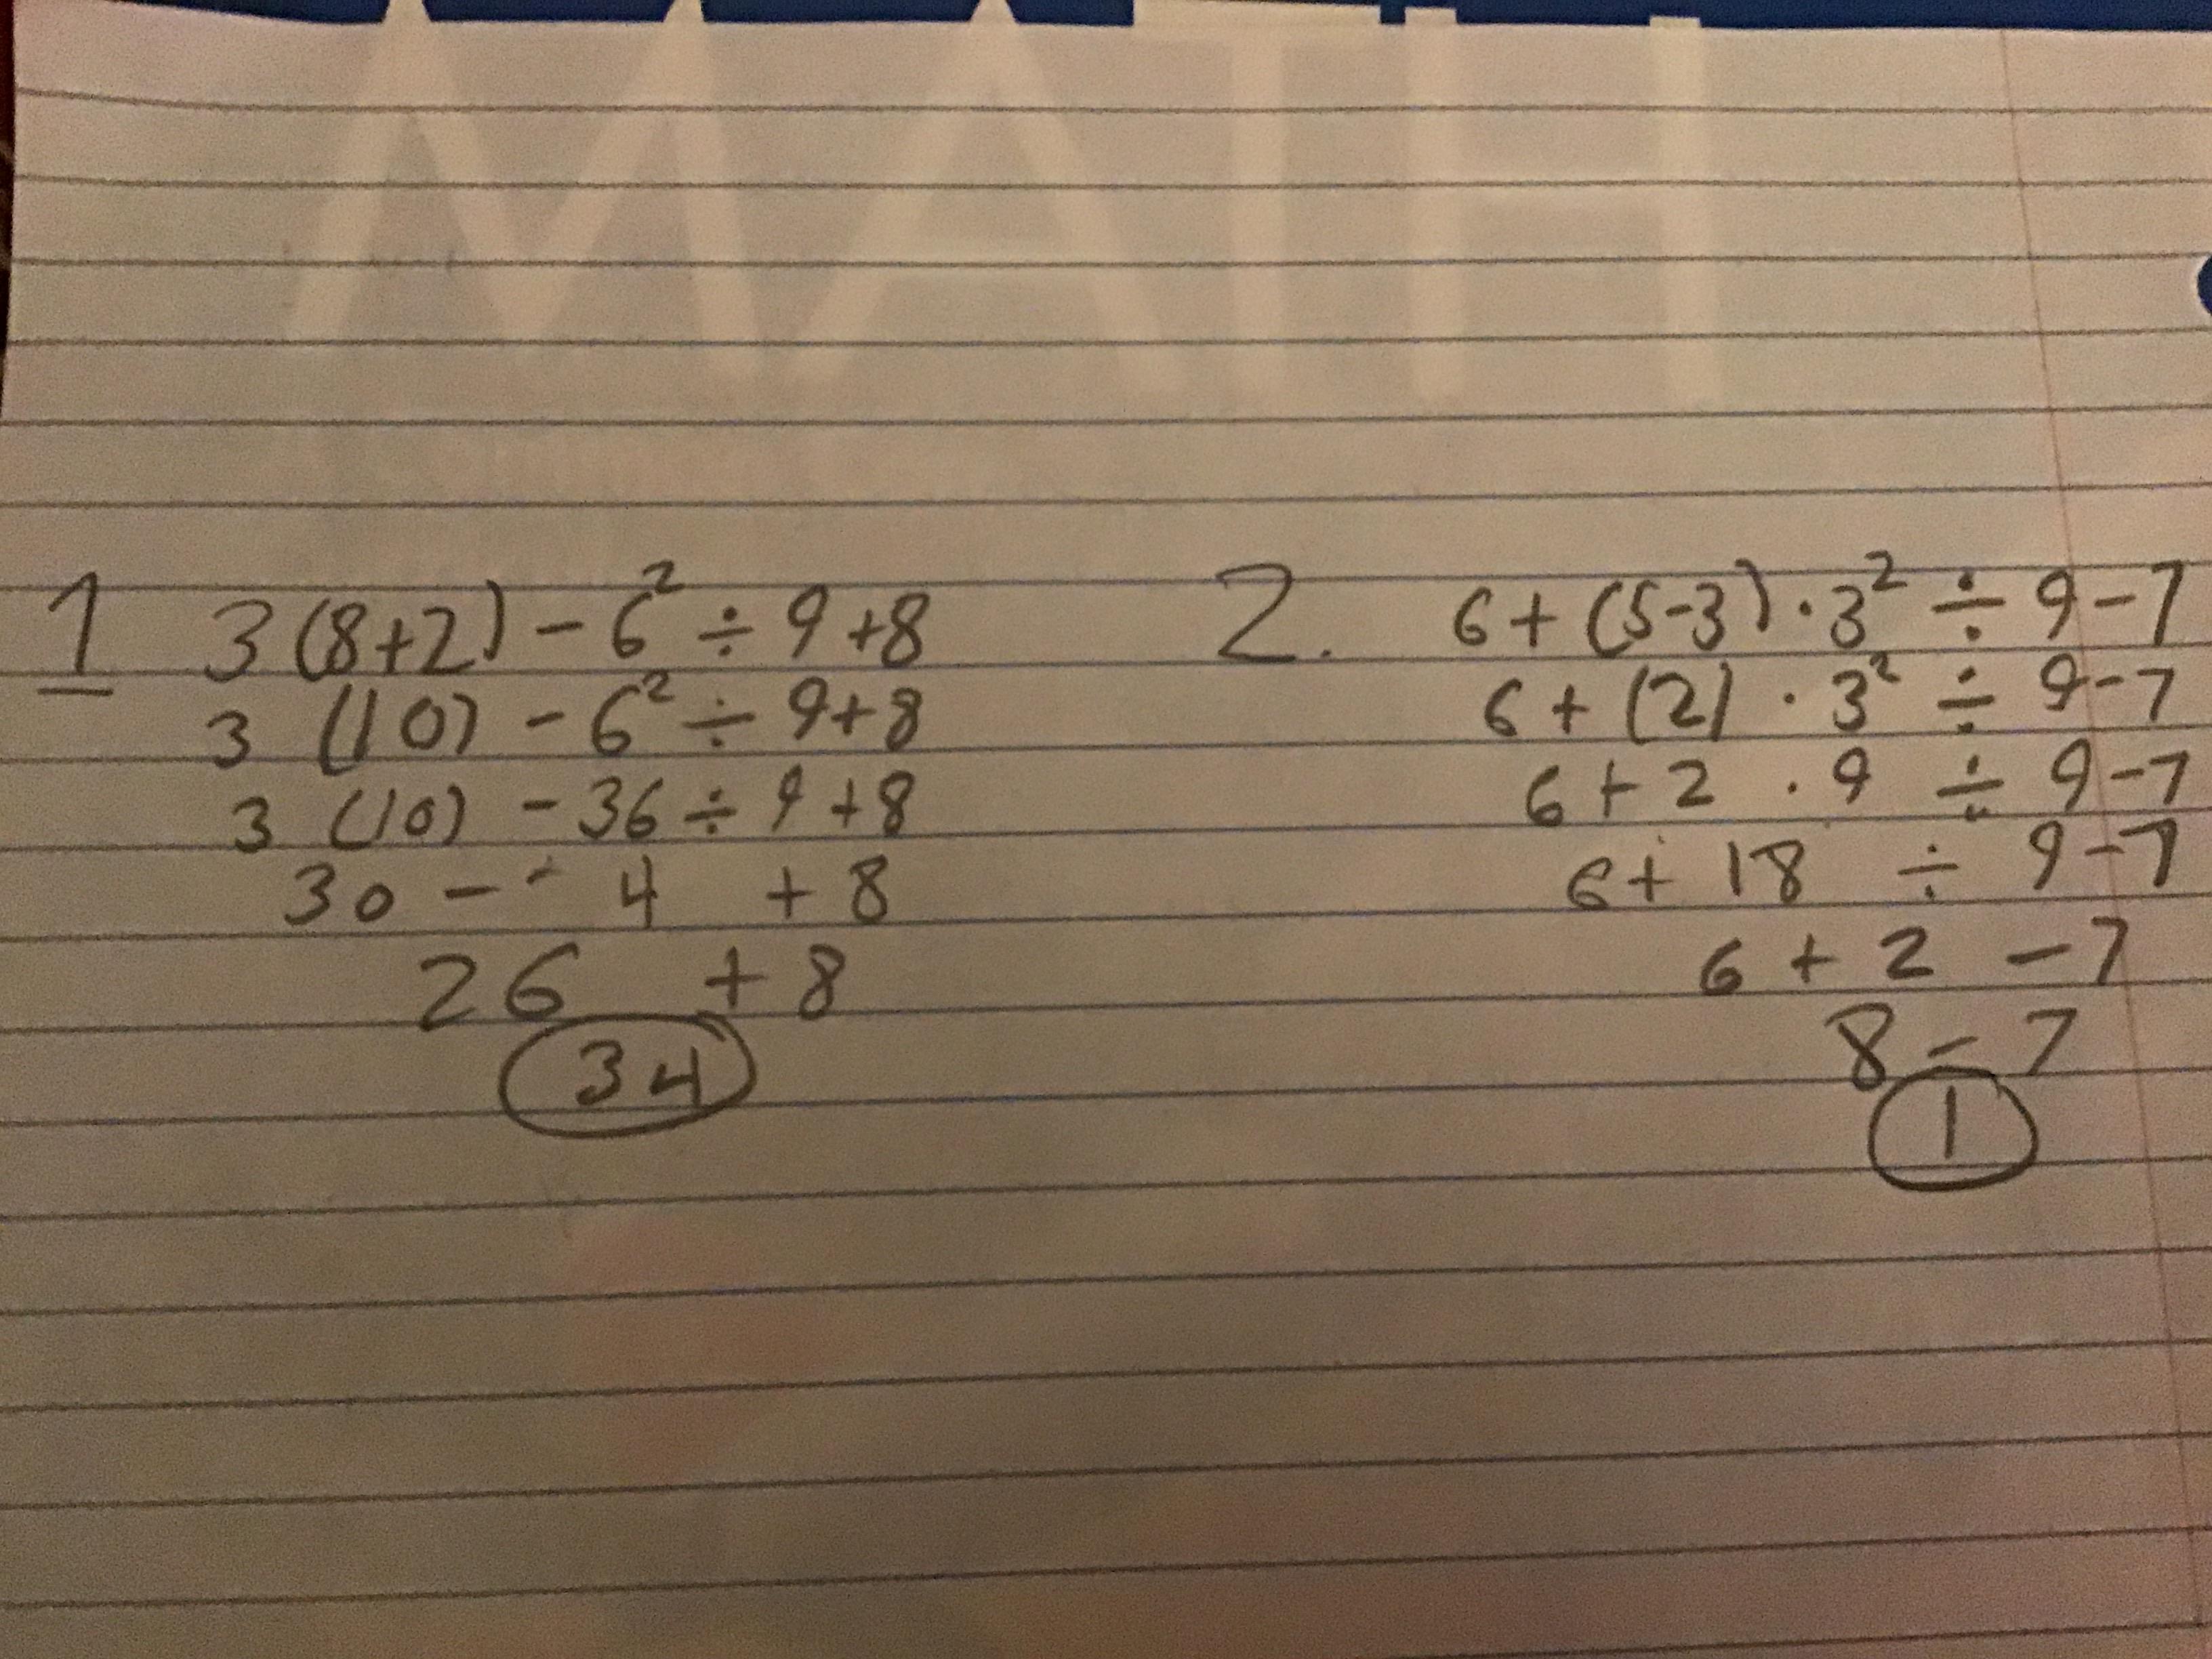 MATH
1 3(8+2)-6² ÷ 9+8
3 (10) - 6² ÷ 9+8
3 (10) - 36 ÷ 9 +8
30 - - 4 + 8
26 + 8
34
2. 6+(5-3)·3² ÷ 9-7
6 + (2) · 3² ÷ 9-7
6 + 2 · 9 ÷ 9-7
6+ 18 ÷ 9-7
6 + 2 - 7
8 - 7
1